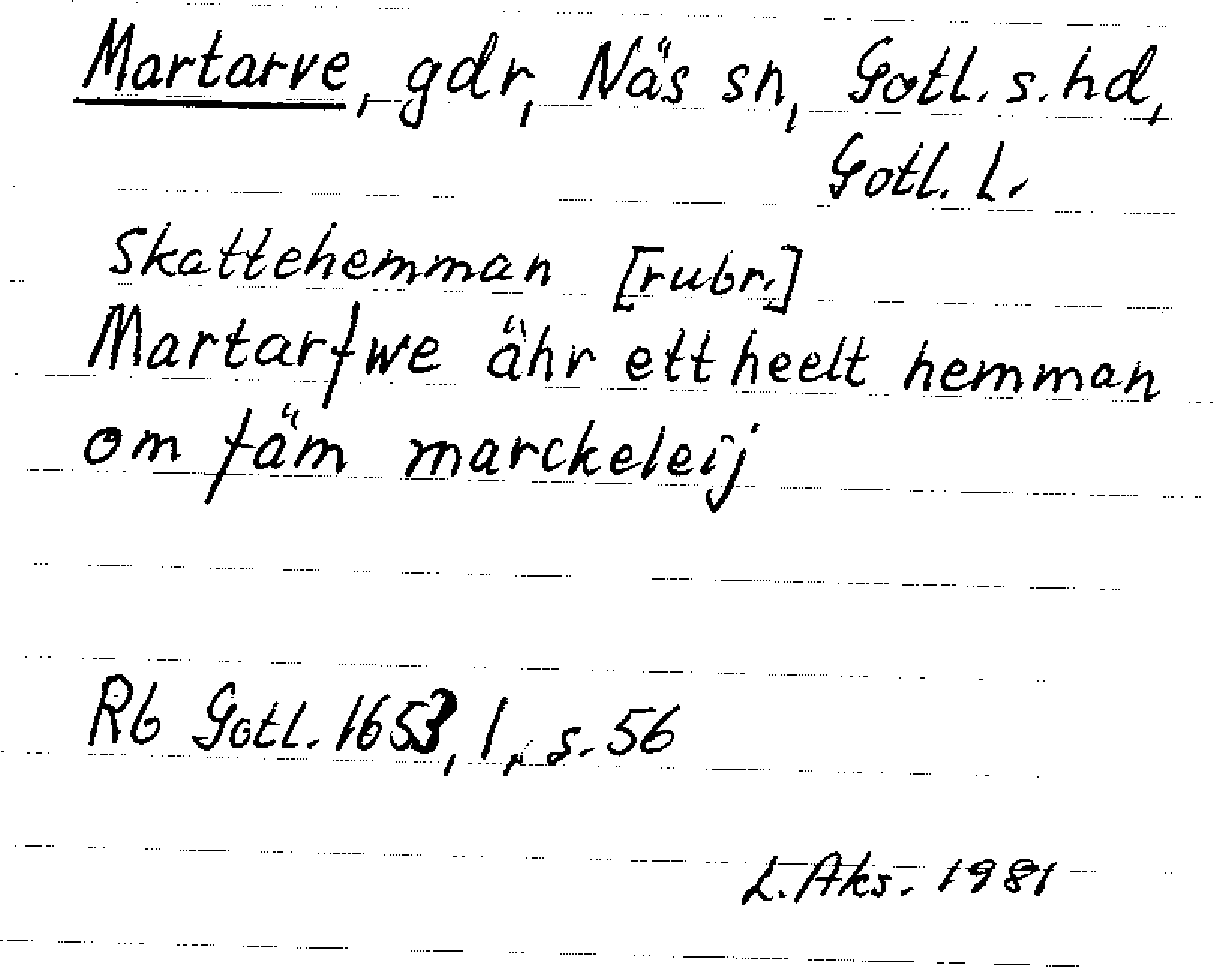 Martarve, gdr, Näs sn, Gotl. s. hd,
Gotl. l.
Skattehemman [rubr.]
Martarfwe ähr ett heelt hemman
om fäm marckeleij
Rb Gotl. 1653, 1, s. 56
L. Aks. 1981